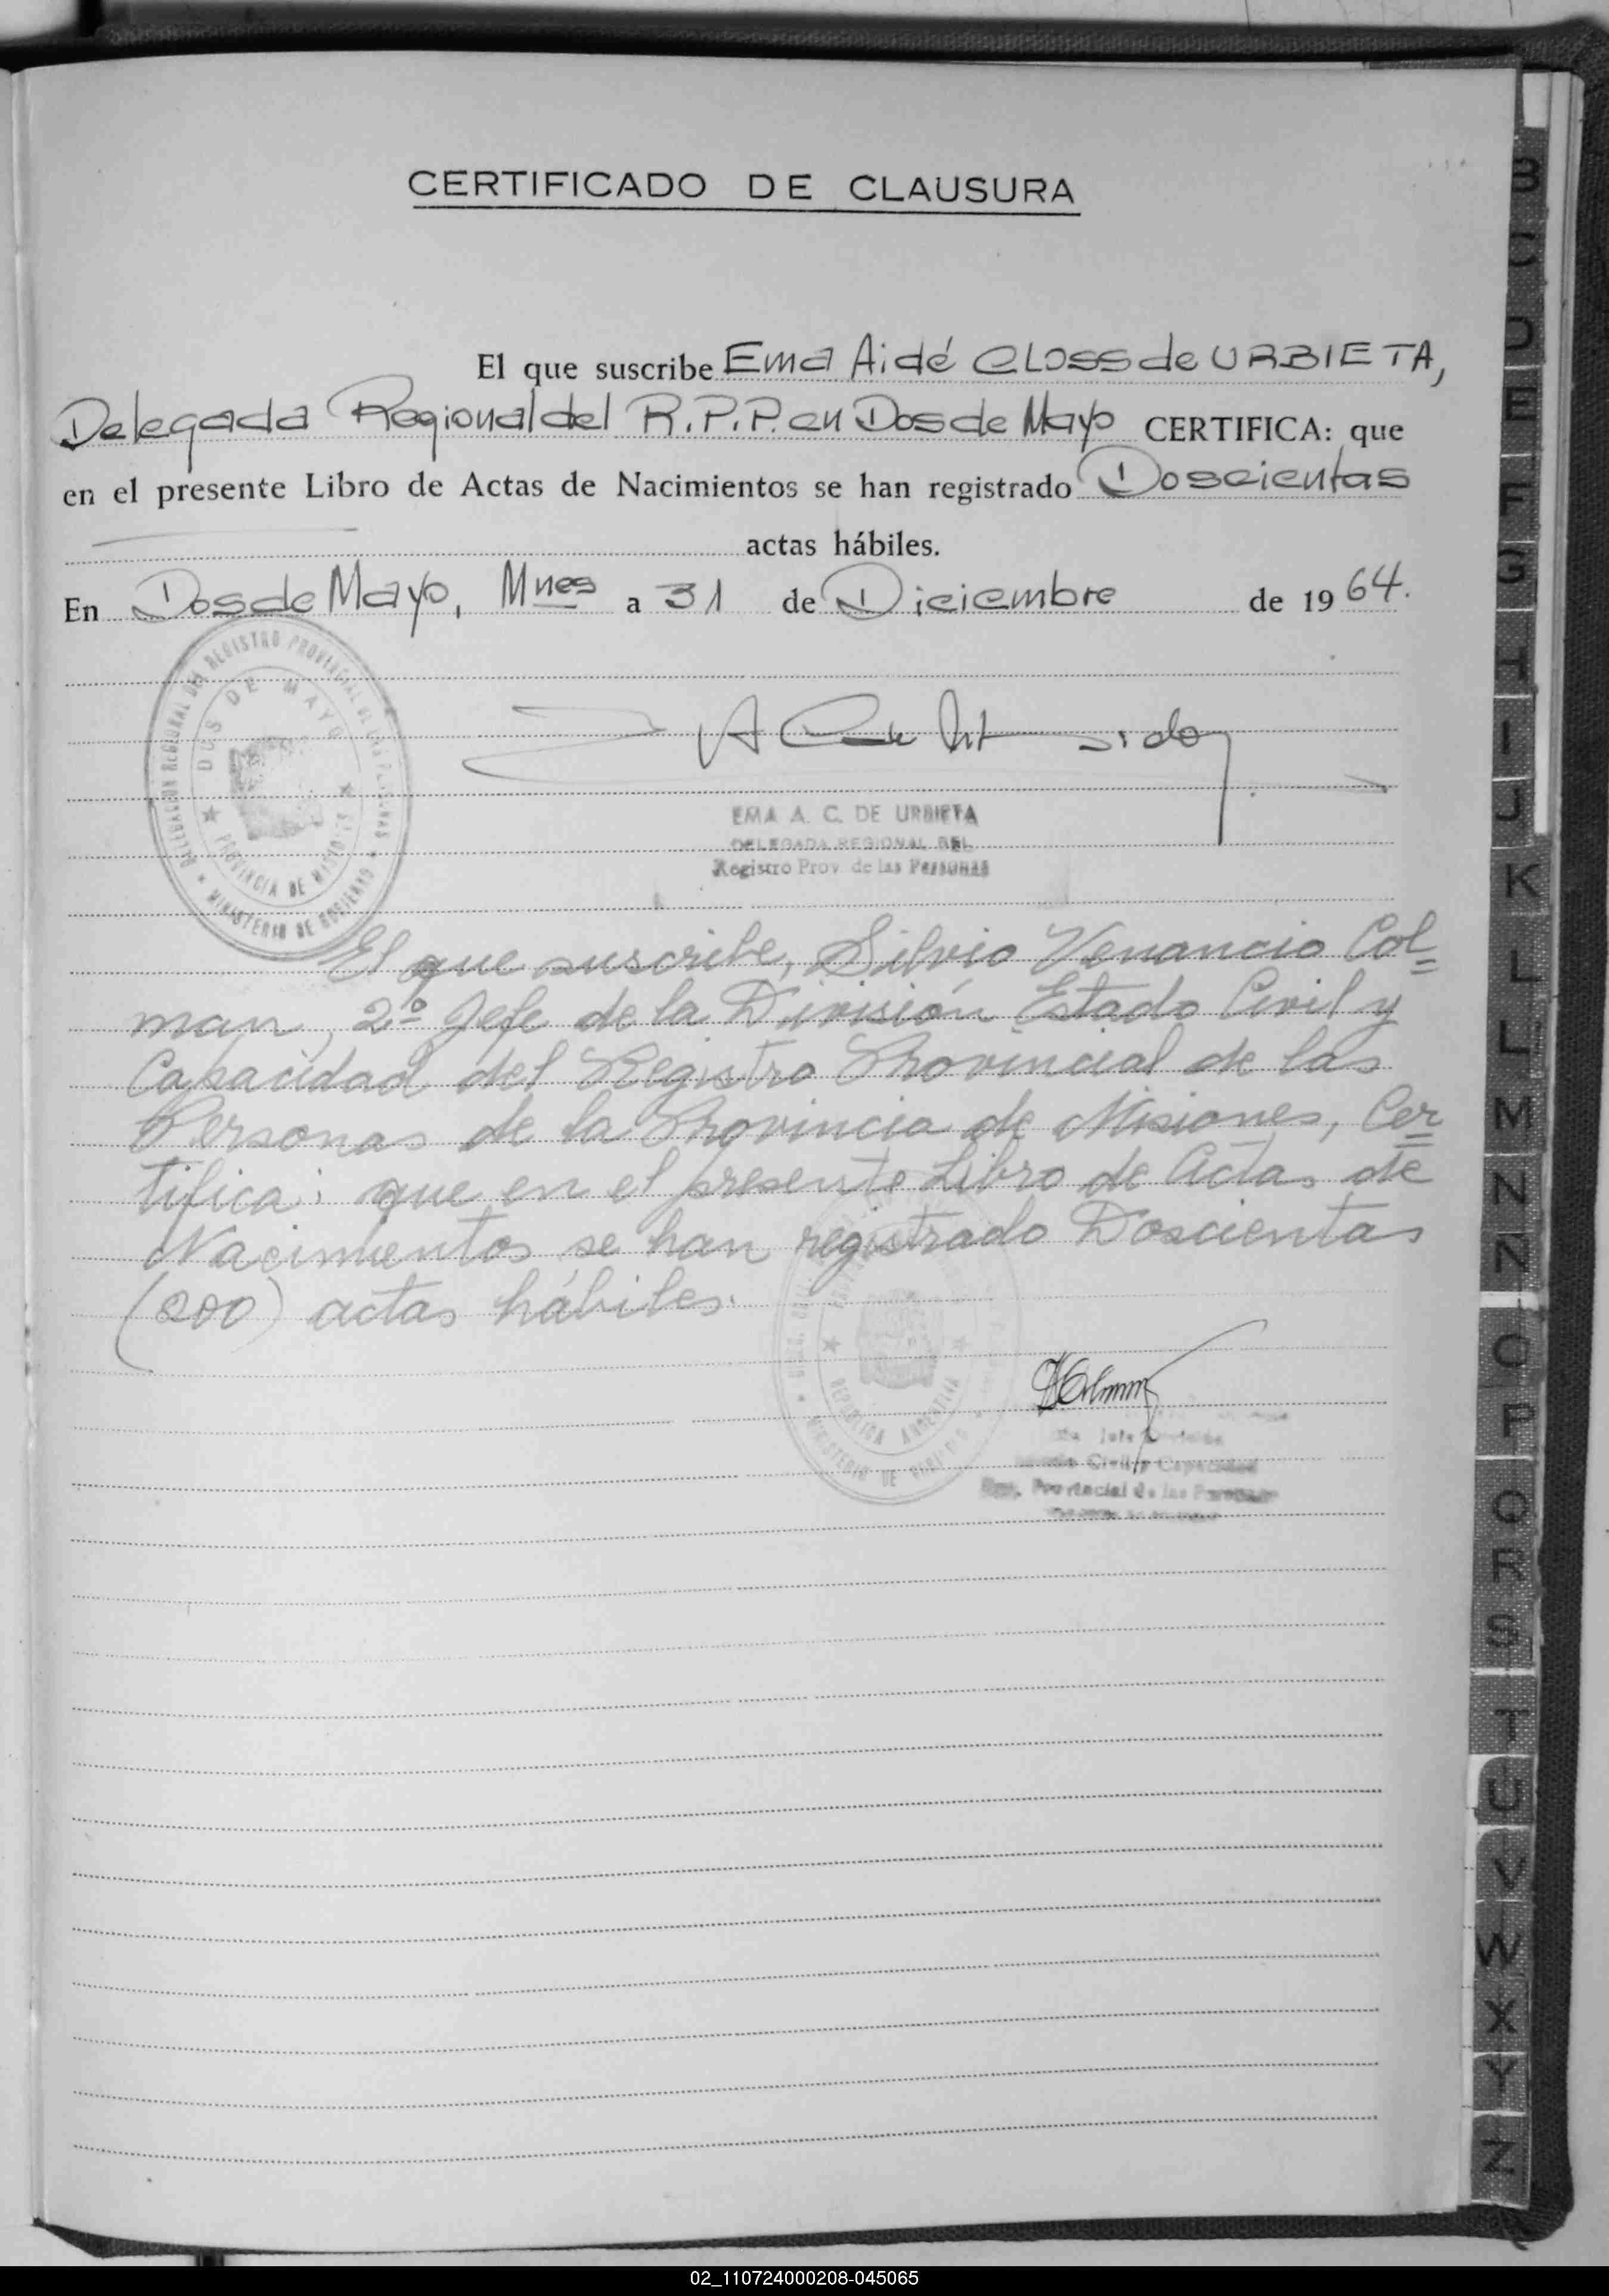 CERTIFICADO DE CLAUSURA
El que suscribe Ema Aidé Closs de URBIETA,
Delegada Regional del R.P.P. en Dos de Mayo CERTIFICA: que
en el presente Libro de Actas de Nacimientos se han registrado Doscientas
actas hábiles.
En Dos de Mayo, Mnes a 31 de Diciembre de 1964.
DELEGACION REGIONAL DEL REGISTRO PROVINCIAL DE LAS PERSONAS
DOS DE MAYO
PROVINCIA DE MISIONES
MINISTERIO DE GOBIERNO
EMA A. C. DE URBIETA
DELEGADA REGIONAL DEL
Registro Prov. de las Personas
El que suscribe, Silvio Venancio Col=
man, 2º Jefe de la División Estado Civil y
Capacidad del Registro Provincial de las
Personas de la Provincia de Misiones, Cer=
tifica: que en el presente Libro de Actas de
Nacimientos se han registrado Doscientas
(200) actas hábiles.
REPUBLICA ARGENTINA
MINISTERIO DE GOBIERNO
Civil y Capacidad
Reg. Provincial de las Personas
B
C
D
E
F
G
H
I
J
K
L
LL
M
N
Ñ
O
P
Q
R
S
T
U
V
W
X
Y
Z
02_110724000208-045065